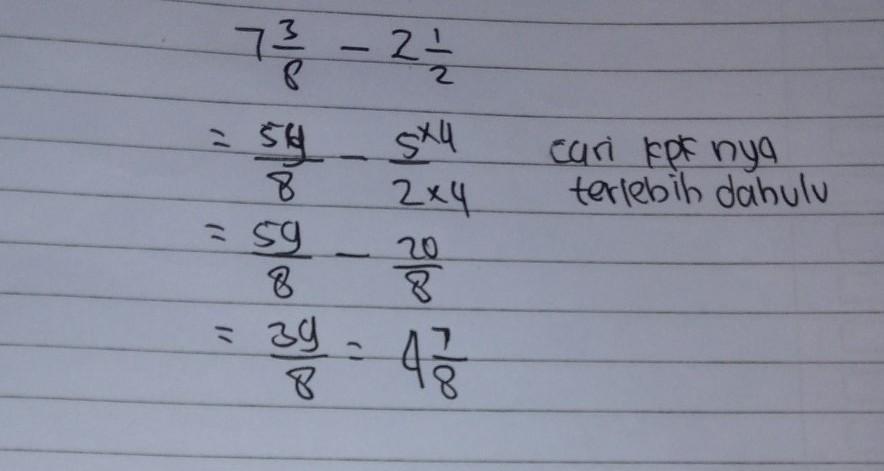 7 3/8 - 2 1/2
= 59/8 - 5×4/2×4 cari KPK nya
terlebih dahulu
= 59/8 - 20/8
= 39/8 = 4 7/8